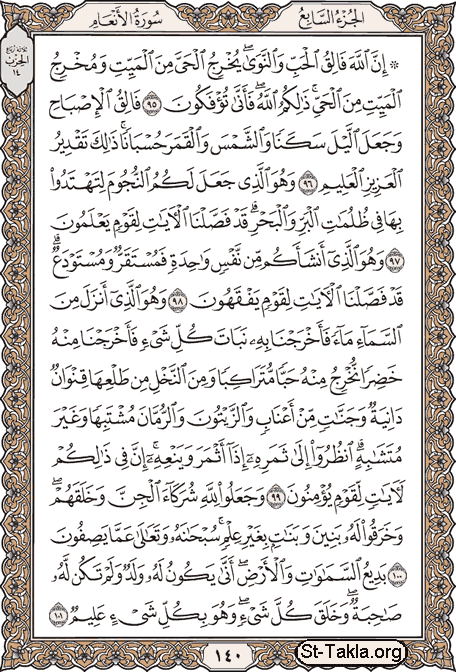 سُورَةُ الأَنْعَامِ
الجُزْءُ السَّابِعُ
۞ إِنَّ ٱللَّهَ فَالِقُ ٱلْحَبِّ وَٱلنَّوَىٰۖ يُخْرِجُ ٱلْحَىَّ مِنَ ٱلْمَيِّتِ وَمُخْرِجُ
ٱلْمَيِّتِ مِنَ ٱلْحَىِّۚ ذَٰلِكُمُ ٱللَّهُۖ فَأَنَّىٰ تُؤْفَكُونَ ٩٥ فَالِقُ ٱلْإِصْبَاحِ
وَجَعَلَ ٱلَّيْلَ سَكَنًا وَٱلشَّمْسَ وَٱلْقَمَرَ حُسْبَانًاۚ ذَٰلِكَ تَقْدِيرُ
ٱلْعَزِيزِ ٱلْعَلِيمِ ٩٦ وَهُوَ ٱلَّذِى جَعَلَ لَكُمُ ٱلنُّجُومَ لِتَهْتَدُوا۟
بِهَا فِى ظُلُمَٰتِ ٱلْبَرِّ وَٱلْبَحْرِۗ قَدْ فَصَّلْنَا ٱلْءَايَٰتِ لِقَوْمٍ يَعْلَمُونَ
٩٧ وَهُوَ ٱلَّذِىٓ أَنشَأَكُم مِّن نَّفْسٍ وَٰحِدَةٍ فَمُسْتَقَرٌّ وَمُسْتَوْدَعٌۗ
قَدْ فَصَّلْنَا ٱلْءَايَٰتِ لِقَوْمٍ يَفْقَهُونَ ٩٨ وَهُوَ ٱلَّذِىٓ أَنزَلَ مِنَ
ٱلسَّمَآءِ مَآءً فَأَخْرَجْنَا بِهِۦ نَبَاتَ كُلِّ شَىْءٍ فَأَخْرَجْنَا مِنْهُ
خَضِرًا نُّخْرِجُ مِنْهُ حَبًّا مُّتَرَاكِبًا وَمِنَ ٱلنَّخْلِ مِن طَلْعِهَا قِنْوَانٌ
دَانِيَةٌ وَجَنَّٰتٍ مِّنْ أَعْنَابٍ وَٱلزَّيْتُونَ وَٱلرُّمَّانَ مُشْتَبِهًا وَغَيْرَ
مُتَشَٰبِهٍۗ ٱنظُرُوٓا۟ إِلَىٰ ثَمَرِهِۦٓ إِذَآ أَثْمَرَ وَيَنْعِهِۦٓۚ إِنَّ فِى ذَٰلِكُمْ
لَءَايَٰتٍ لِّقَوْمٍ يُؤْمِنُونَ ٩٩ وَجَعَلُوا۟ لِلَّهِ شُرَكَآءَ ٱلْجِنَّ وَخَلَقَهُمْۖ
وَخَرَقُوا۟ لَهُۥ بَنِينَ وَبَنَٰتٍۭ بِغَيْرِ عِلْمٍۚ سُبْحَٰنَهُۥ وَتَعَٰلَىٰ عَمَّا يَصِفُونَ
١٠٠ بَدِيعُ ٱلسَّمَٰوَٰتِ وَٱلْأَرْضِۖ أَنَّىٰ يَكُونُ لَهُۥ وَلَدٌ وَلَمْ تَكُن لَّهُۥ
صَٰحِبَةٌۖ وَخَلَقَ كُلَّ شَىْءٍۖ وَهُوَ بِكُلِّ شَىْءٍ عَلِيمٌ ١٠١
١٤٠
St-Takla.org